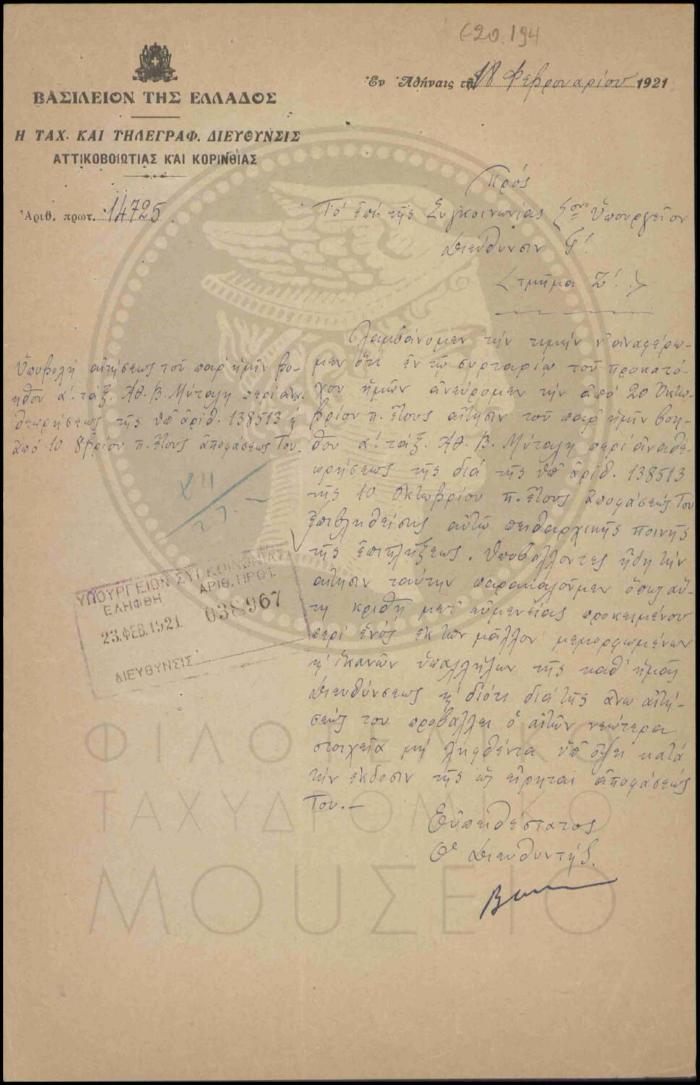 620.194
Ἐν Ἀθήναις τῇ 18 Φεβρουαρίου 1921
ΒΑΣΙΛΕΙΟΝ ΤΗΣ ΕΛΛΑΔΟΣ
Η ΤΑΧ. ΚΑΙ ΤΗΛΕΓΡΑΦ. ΔΙΕΥΘΥΝΣΙΣ
ΑΤΤΙΚΟΒΟΙΩΤΙΑΣ ΚΑΙ ΚΟΡΙΝΘΙΑΣ
Ἀριθ. πρωτ. 14725
Πρὸς
Τὸ ἐπὶ τῆς Συγκοινωνίας Ὑπουργεῖον
Διεύθυνσιν Γ'.
<Τμῆμα Ζ'.>
Ὑποβολὴ αἰτήσεως τοῦ παρ' ἡμῖν βο-
ηθοῦ α' τάξ. Ἀθ. Β. Μύταλη περὶ ἀνα-
θεωρήσεως τῆς ὑπ' ἀριθ. 138513 ἢ
ἀπὸ 10 8βρίου π. ἔτους ἀποφάσεώς Του.
Λαμβάνομεν τὴν τιμὴν ν' ἀναφέρω-
μεν ὅτι ἐν τῷ συρταρίῳ τοῦ προκατό-
χου ἡμῶν ἀνεύρομεν τὴν ἀπὸ 20 Ὀκτω-
βρίου π. ἔτους αἴτησιν τοῦ παρ' ἡμῖν βοη-
θοῦ α' τάξ. Ἀθ. Β. Μύταλη περὶ ἀναθε-
ωρήσεως τῆς διὰ τῆς ὑπ' ἀριθ. 138513
τῆς 10 Ὀκτωβρίου π. ἔτους ἀποφάσεώς Του
ἐπιβληθείσης αὐτῷ πειθαρχικῆς ποινῆς
τῆς ἐπιπλήξεως. Ὑποβάλλοντες ἤδη τὴν
αἴτησιν ταύτην παρακαλοῦμεν ὅπως αὕ-
τη κριθῇ μετ' εὐμενείας προκειμένου
περὶ ἑνὸς ἐκ τῶν μᾶλλον μεμορφωμένων
κ' ἱκανῶν ὑπαλλήλων τῆς καθ' ἡμᾶς
Διευθύνσεως κ' διότι διὰ τῆς ἄνω αἰτή-
σεώς του προβάλλει ὁ αἰτῶν νεώτερα
στοιχεῖα μὴ ληφθέντα ὑπ' ὄψει κατὰ
τὴν ἔκδοσιν τῆς ὡς εἴρηται ἀποφάσεώς
Του.-
Εὐπειθέστατος
Ὁ Διευθυντής.
ΥΠΟΥΡΓΕΙΟΝ ΣΥΓΚΟΙΝΩΝΙΑΣ
ΕΛΗΦΘΗ ΑΡΙΘ. ΠΡΩΤ.
23.ΦΕΒ.1921 038967
ΔΙΕΥΘΥΝΣΙΣ
ΦΙΛΟΤΕΛΙΚΟ
ΤΑΧΥΔΡΟΜΙΚΟ
ΜΟΥΣΕΙΟ